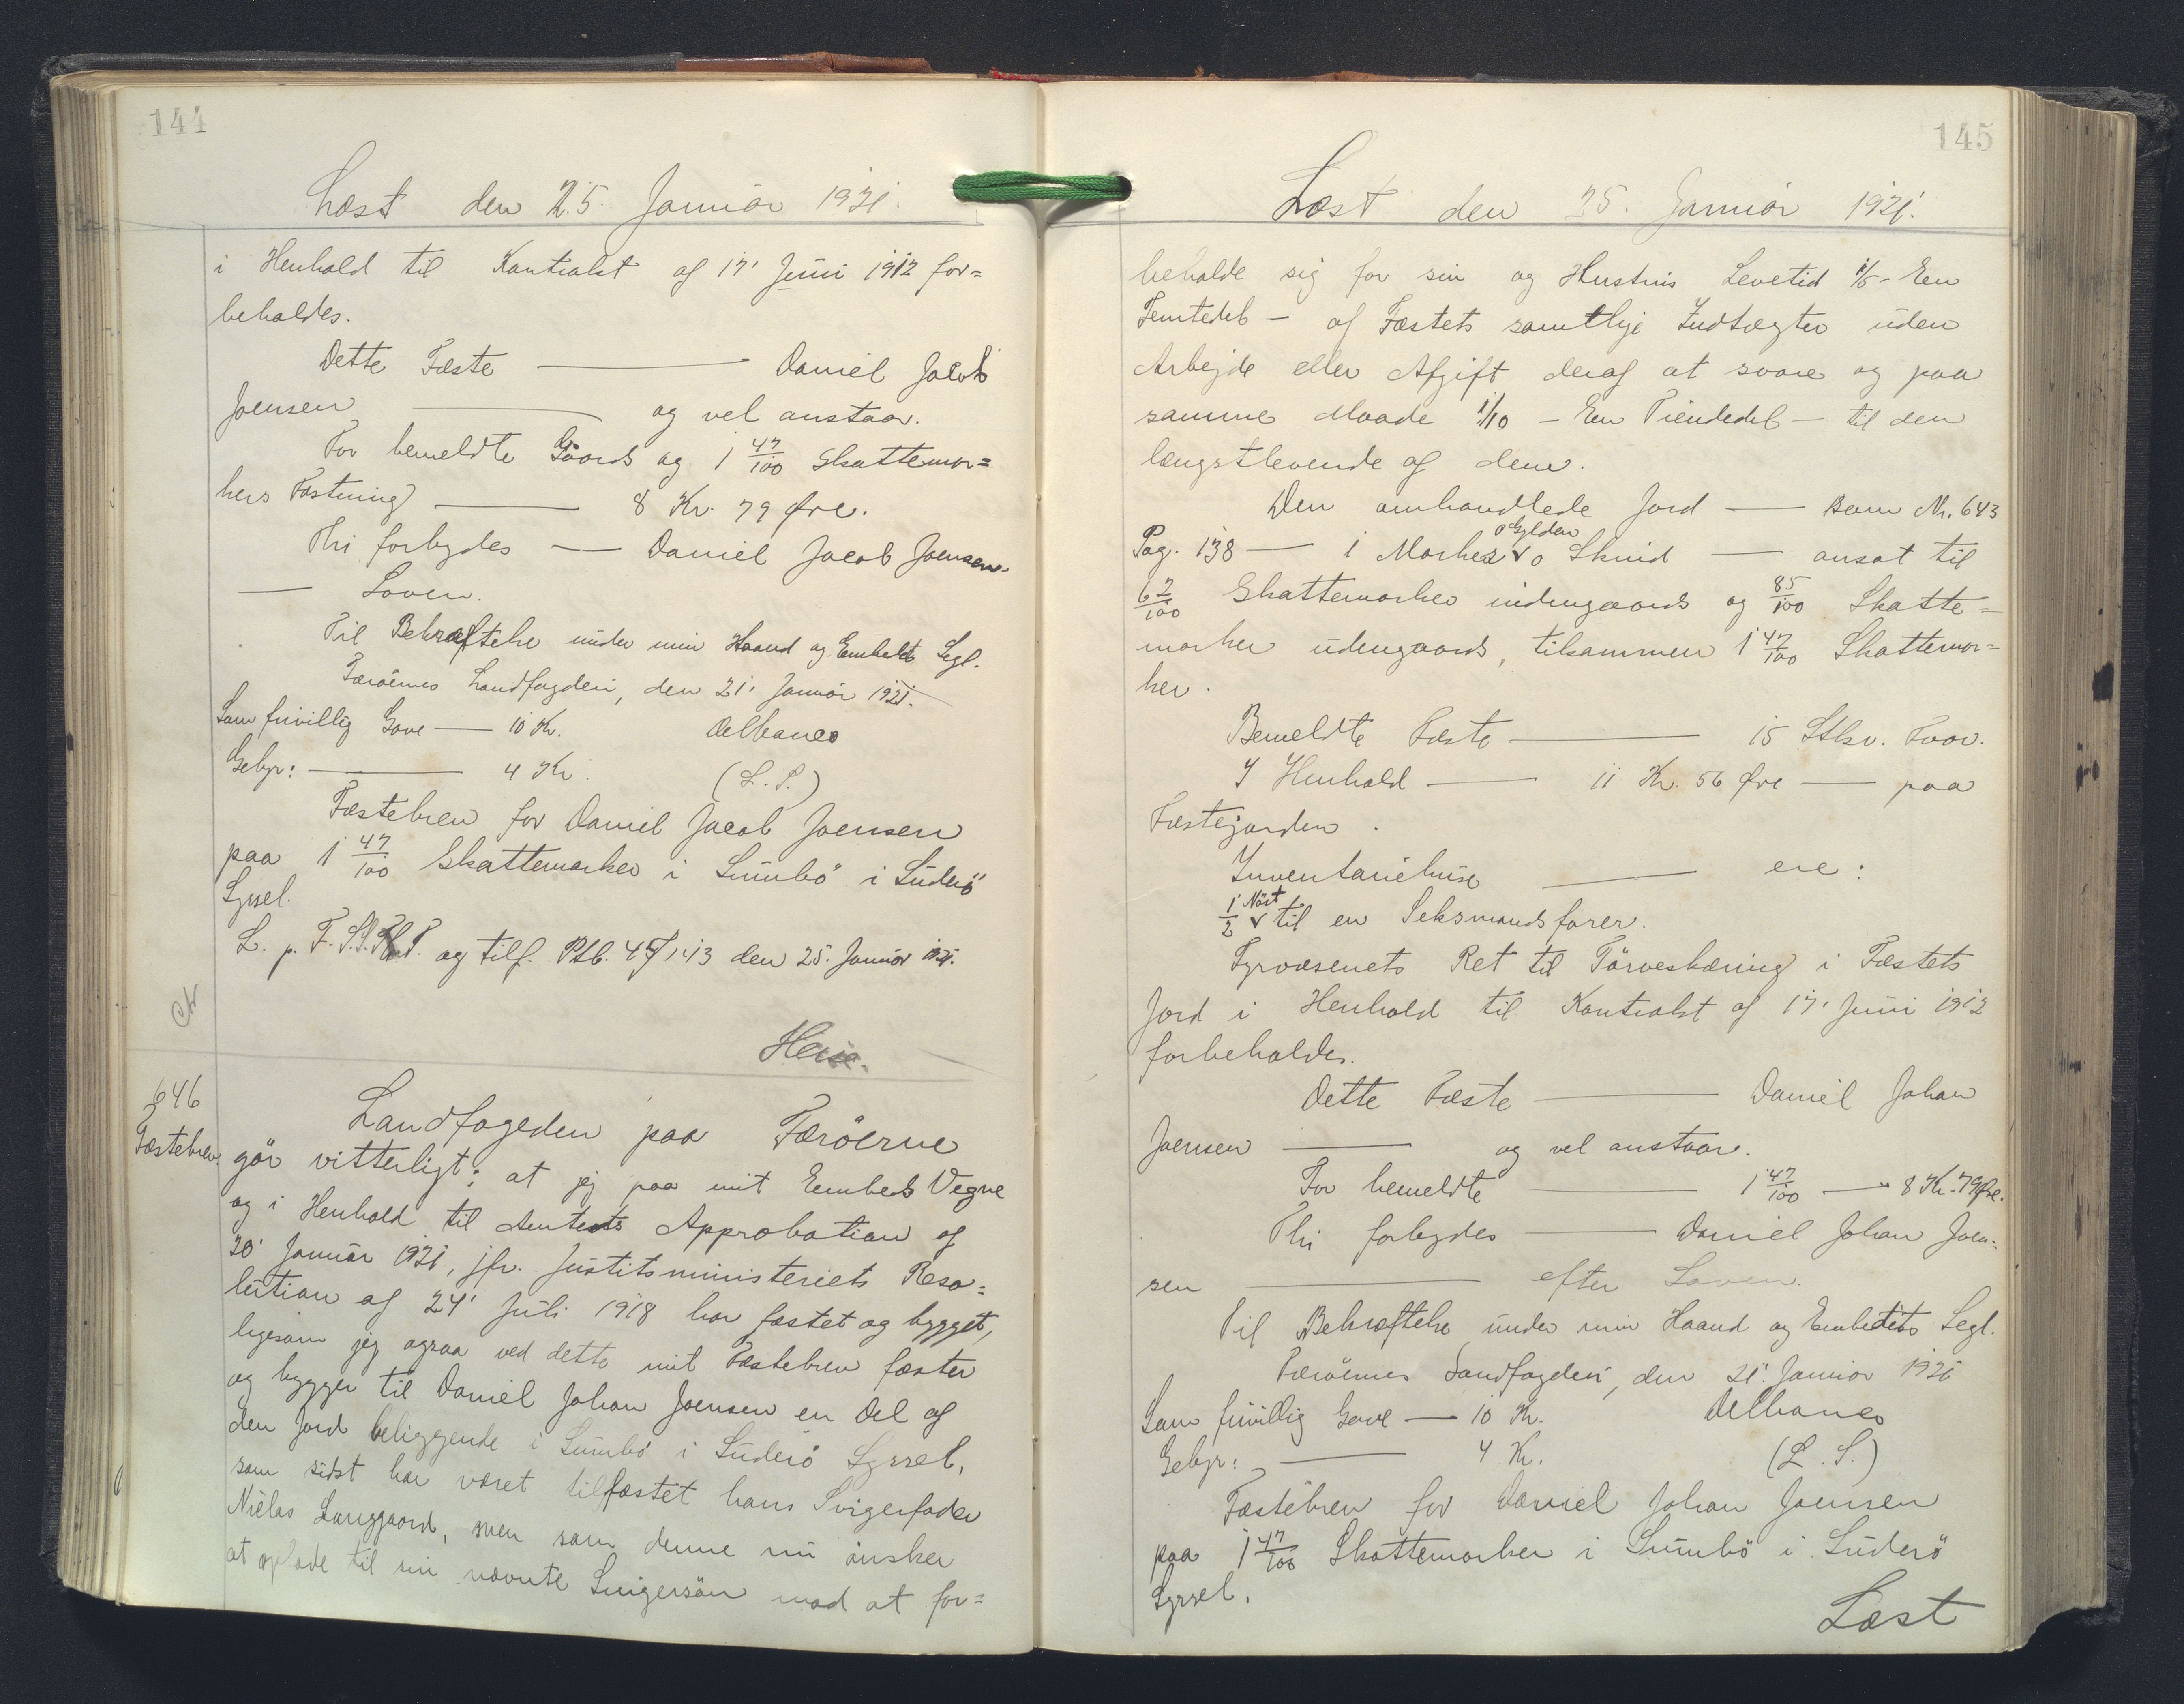 144
Læst den 25. Januar 1921.
i Henhold til Kontrakt af 17' Juni 1912 for=
beholdes.
Dette Fæste — Daniel Jacob
Joensen — og vel anstaar.
For bemeldte Gaards og 1 47/100 Skattemar=
kers Fæstning — 8 Kr. 79 Øre.
Thi forbydes — Daniel Jacob Joensen
— Loven.
Til Bekræftelse under min Haand og Embeds Segl.
Færöernes Landfogderi, den 21' Januar 1921.
Som frivillig Gave — 10 Kr. Aelbanco
Gebyr: — 4 Kr. (L. S.)
Fæstebrev for Daniel Jacob Joensen
paa 1 47/100 Skattemarker i Sumbö i Süderö
Syssel.
L. p. F. S. S. og tilf. Ptb. 45/143 den 25. Januar 1921.
Heise.
646
Fæstebrev.
Landfogeden paa Færöerne
gör vitterligt: at jeg paa mit Embeds Vegne
og i Henhold til Amtets Approbation af
20' Januar 1921, jfr. Justitsministeriets Reso=
lution af 24' Juli 1918 har fæstet og bygget,
ligesom jeg ogsaa ved dette mit Fæstebrev fæster
og bygger til Daniel Johan Joensen en Del af
den Jord beliggende i Sumbö i Süderö Syssel,
som sidst har været tilfæstet hans Svigerfader
Niclas Langgaard, men som denne nu önsker
at oplade til sin nævnte Svigersön mod at for=
145
Læst den 25. Januar 1921.
beholde sig for sin og Hustrus Levetid 1/5 - Een
Femtedel — af Fæstets samtlige Indtægter uden
Arbejde eller Afgift deraf at svare og paa
samme Maade 1/10 — Een Tiendedel — til den
længstlevende af dem.
Den omhandlede Jord — som Nr. 643
Pag. 138 — 1 Marker 0 Gylden 0 Skind — ansat til
62/100 Skattemarker indengaards og 85/100 Skatte=
marker udengaards, tilsammen 1 47/100 Skattemar=
ker.
Bemeldte Fæste — 15 Stkr. Faar.
I Henhold — 11 Kr. 56 Øre — paa
Fæstejorden.
Inventariehuse — ere:
1/2 Nöst til en Seksmandsfarer.
Fyrvæsenets Ret til Törveskæring i Fæstets
Jord i Henhold til Kontrakt af 17' Juni 1912
forbeholdes.
Dette Fæste — Daniel Johan
Joensen — og vel anstaar.
For bemeldte — 1 47/100 — 8 Kr. 79 Øre.
Thi forbydes — Daniel Johan Joen=
sen — efter Loven.
Til Bekræftelse under min Haand og Embedets Segl.
Færöernes Landfogderi, den 21' Januar 1921
Som frivillig Gave — 10 Kr. Aelbanco
Gebyr: — 4 Kr. (L. S.)
Fæstebrev for Daniel Johan Joensen
paa 1 47/100 Skattemarker i Sumbö i Süderö
Syssel.
Læst